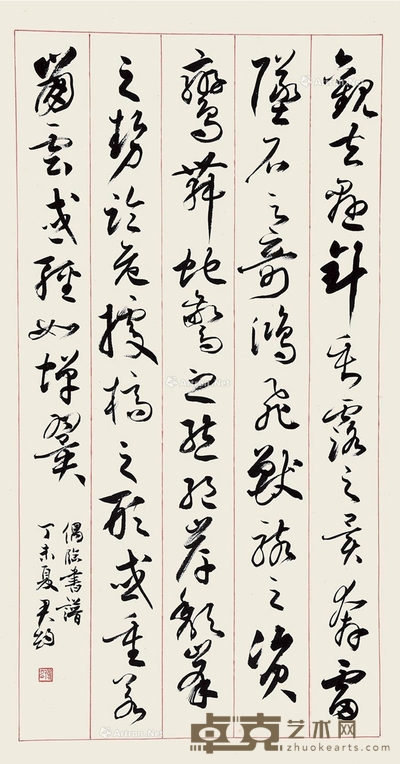 觀夫懸針垂露之異奔雷
墜石之奇鴻飛獸駭之資
鸞舞蛇驚之態絕岸頹峯
之勢臨危據槁之形或重若
崩雲或輕如蟬翼
偶臨書譜
丁未夏
卓克艺术网
zhuokearts.com